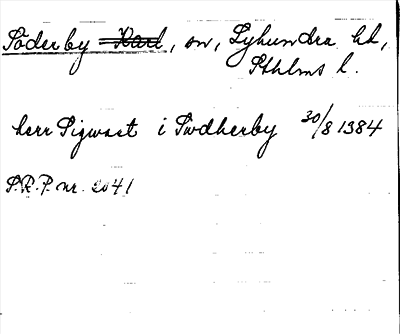 Söderby Karl, sn, Lyhundra hd,
Sthlms l.
herr Sigwast i Swdherby 30/8 1384
S.R.P. nr. 2041